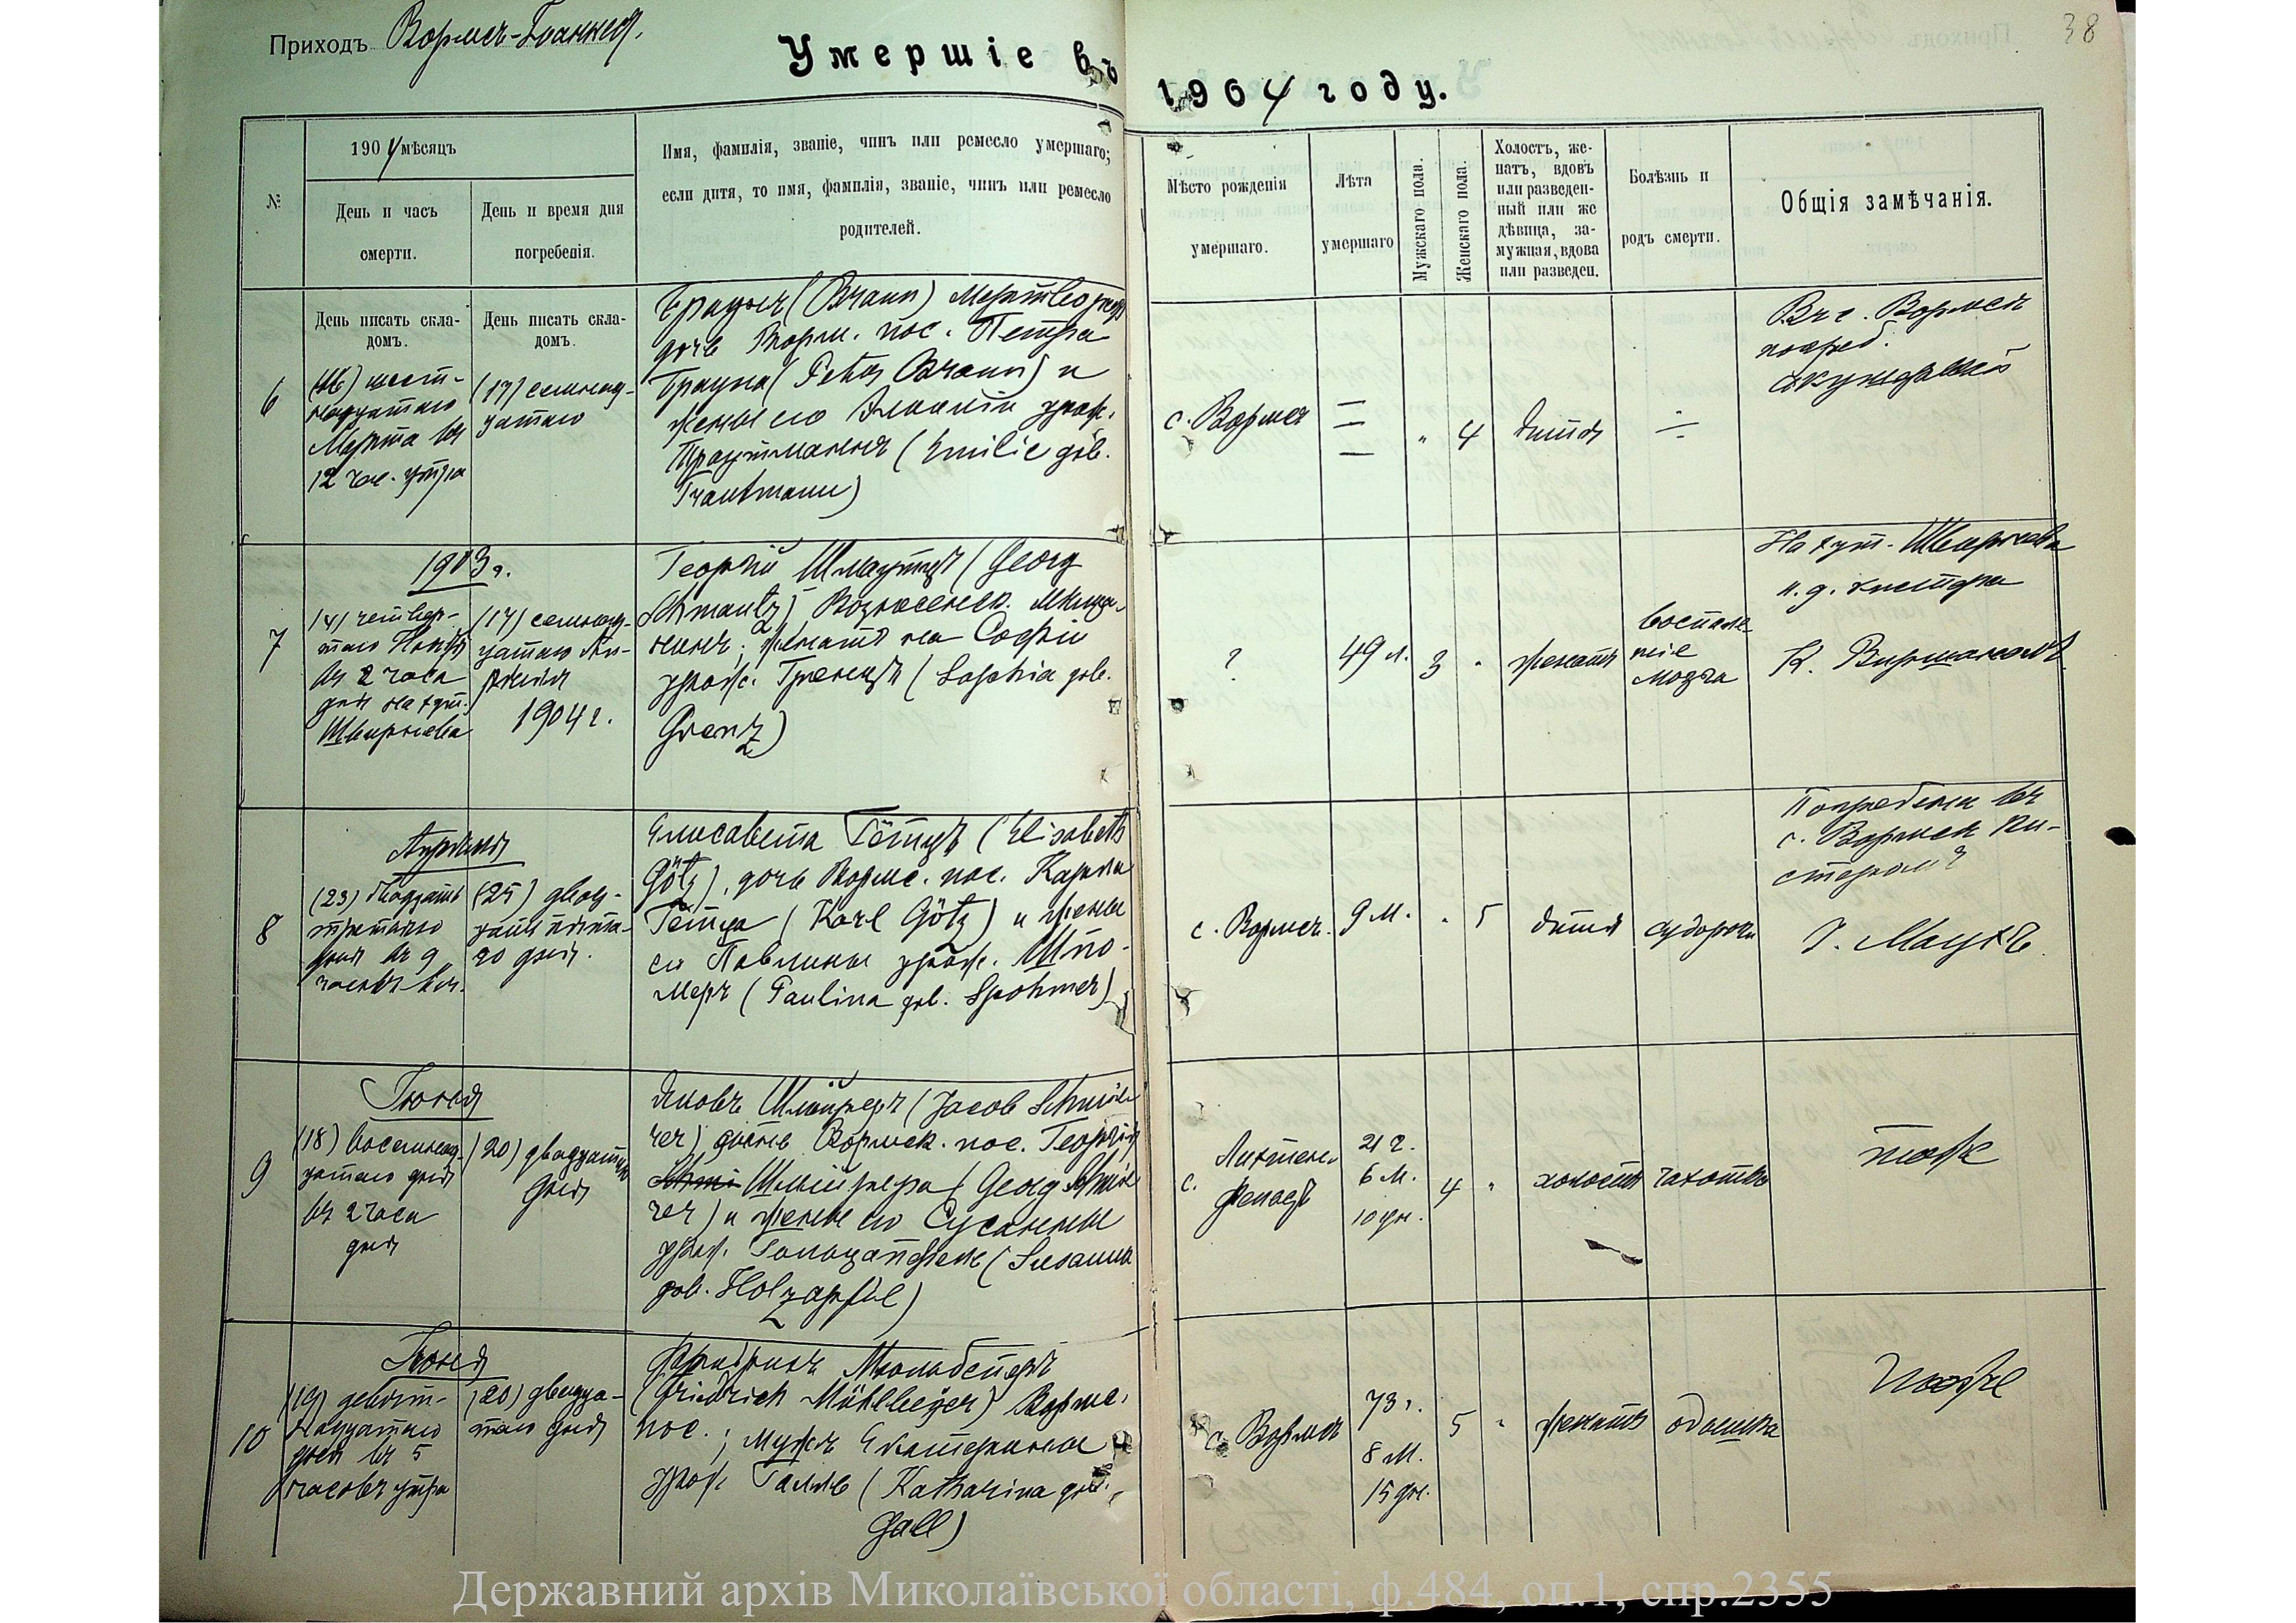 Приходъ Вормсъ-Іоаннест.
38
Умершіе въ
1904 году.
№
1904 мѣсяцъ
День и часъ
смерти.
День и время дня
погребенія.
Имя, фамилія, званіе, чинъ или ремесло умершаго;
если дитя, то имя, фамилія, званіе, чинъ или ремесло
родителей.
Мѣсто рожденія
умершаго.
Лѣта
умершаго
Мужскаго пола.
Женскаго пола.
Холостъ, же-
натъ, вдовъ
или разведен-
ный или же
дѣвица, за-
мужная, вдова
или разведен.
Болѣзнь и
родъ смерти.
Общія замѣчанія.
День писать скла-
домъ.
День писать скла-
домъ.
6
(16) шест-
надцатаго
Марта въ
12 час. утра
(17) семнад-
цатаго
Браунъ (Braun) мертворожд
дочь Ворм. пос. Петра
Брауна (Peter Braun) и
жены его Эмиліи урож.
Траутманнъ (Emilie geb.
Trautmann)
с. Вормсъ
"
4
дитя
Въ с. Вормсъ
погреб.
7
1903 г.
(4) четвер-
таго Ноября
въ 2 часа
дня на хут.
Швырнева
(17) семнад-
цатаго Ап-
рѣля
1904 г.
Георгій Шмаутцъ (Georg
Schmautz) Вознесенск. мѣща-
нинъ; женатъ на Софіи
урож. Гренцъ (Sophia geb.
Grenz)
?
49 л.
3
"
женатъ
воспале-
ніе
мозга
На хут. Швырнева
и. д. кистера
8
Апрѣля
(23) двадцать
третьяго
дня въ 9
часовъ веч.
(25) двад-
цать пята-
го дня.
Елисавета Гётцъ (Elisabeth
Götz), дочь Вормс. пос. Карла
Гётца (Karl Götz) и жены
его Павлины урож. Шпо-
меръ (Paulina geb. Spohmer)
с. Вормсъ.
9 м.
"
5
дитя
судороги
Погребены въ
с. Вормсъ ки-
стеромъ
Г. Маухъ
9
Іюня
(18) восемнад-
цатаго дня
въ 2 часа
дня
(20) двадцатаго
дня
Яковъ Шмейхеръ (Jacob Schmei-
cher) сынъ Вормск. пос. Георгія
Шмейхера (Georg Schmei-
cher) и жены его Сусанны
урож. Гольцапфель (Susanna
geb. Holzapfel)
с.
21 г.
6 м.
10 дн.
4
"
холостъ
чахотка
тоже
10
Іюня
(19) девят-
надцатаго
дня въ 5
часовъ утра
(20) двадца-
таго дня
Фридрихъ Мюльбейеръ
(Friedrich Mühlbeyer) Вормс.
пос.; мужъ Екатерины
урож. Галль (Katharina geb.
Gall)
с. Вормсъ
73 г.
8 м.
15 дн.
5
"
женатъ
одышка
тоже
Державний архів Миколаївської області, ф.484, оп.1, спр.2355